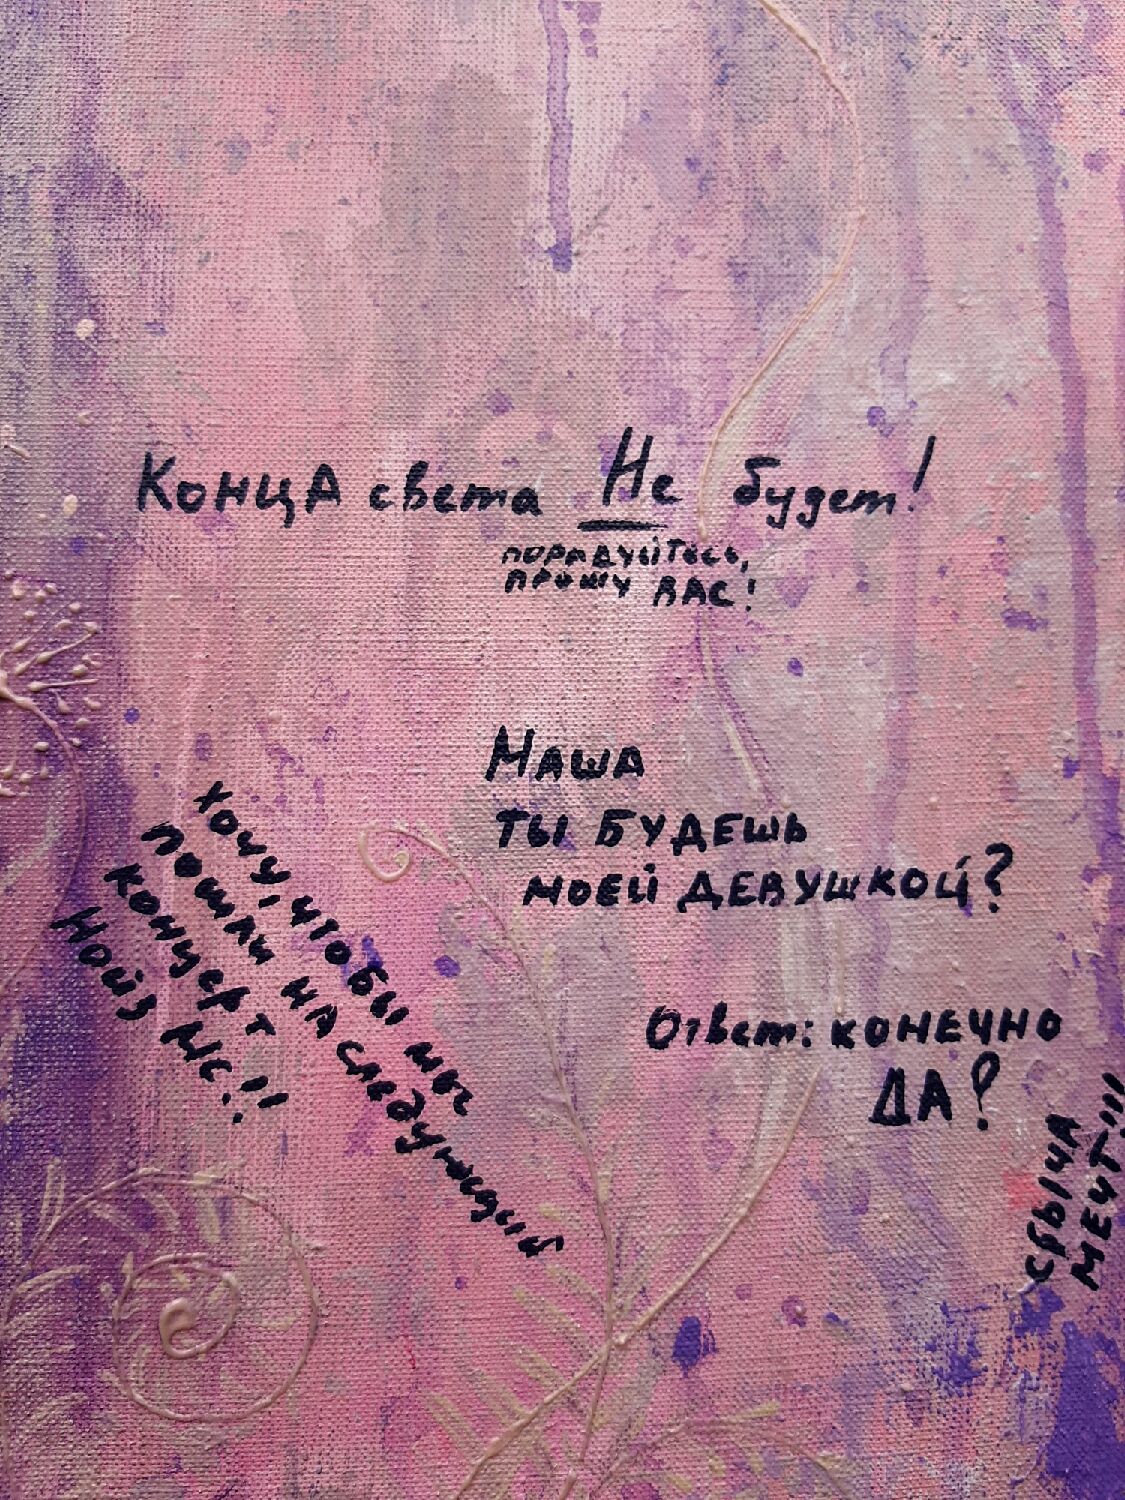 Конца света Не будет!
порадуйтесь,
прошу вас!
Маша
ты будешь
моей девушкой?
Ответ: конечно
да?
Хочу, чтобы мы
пошли на следующий
концерт
Нойз МС!!
Сбыча
мечт!!!